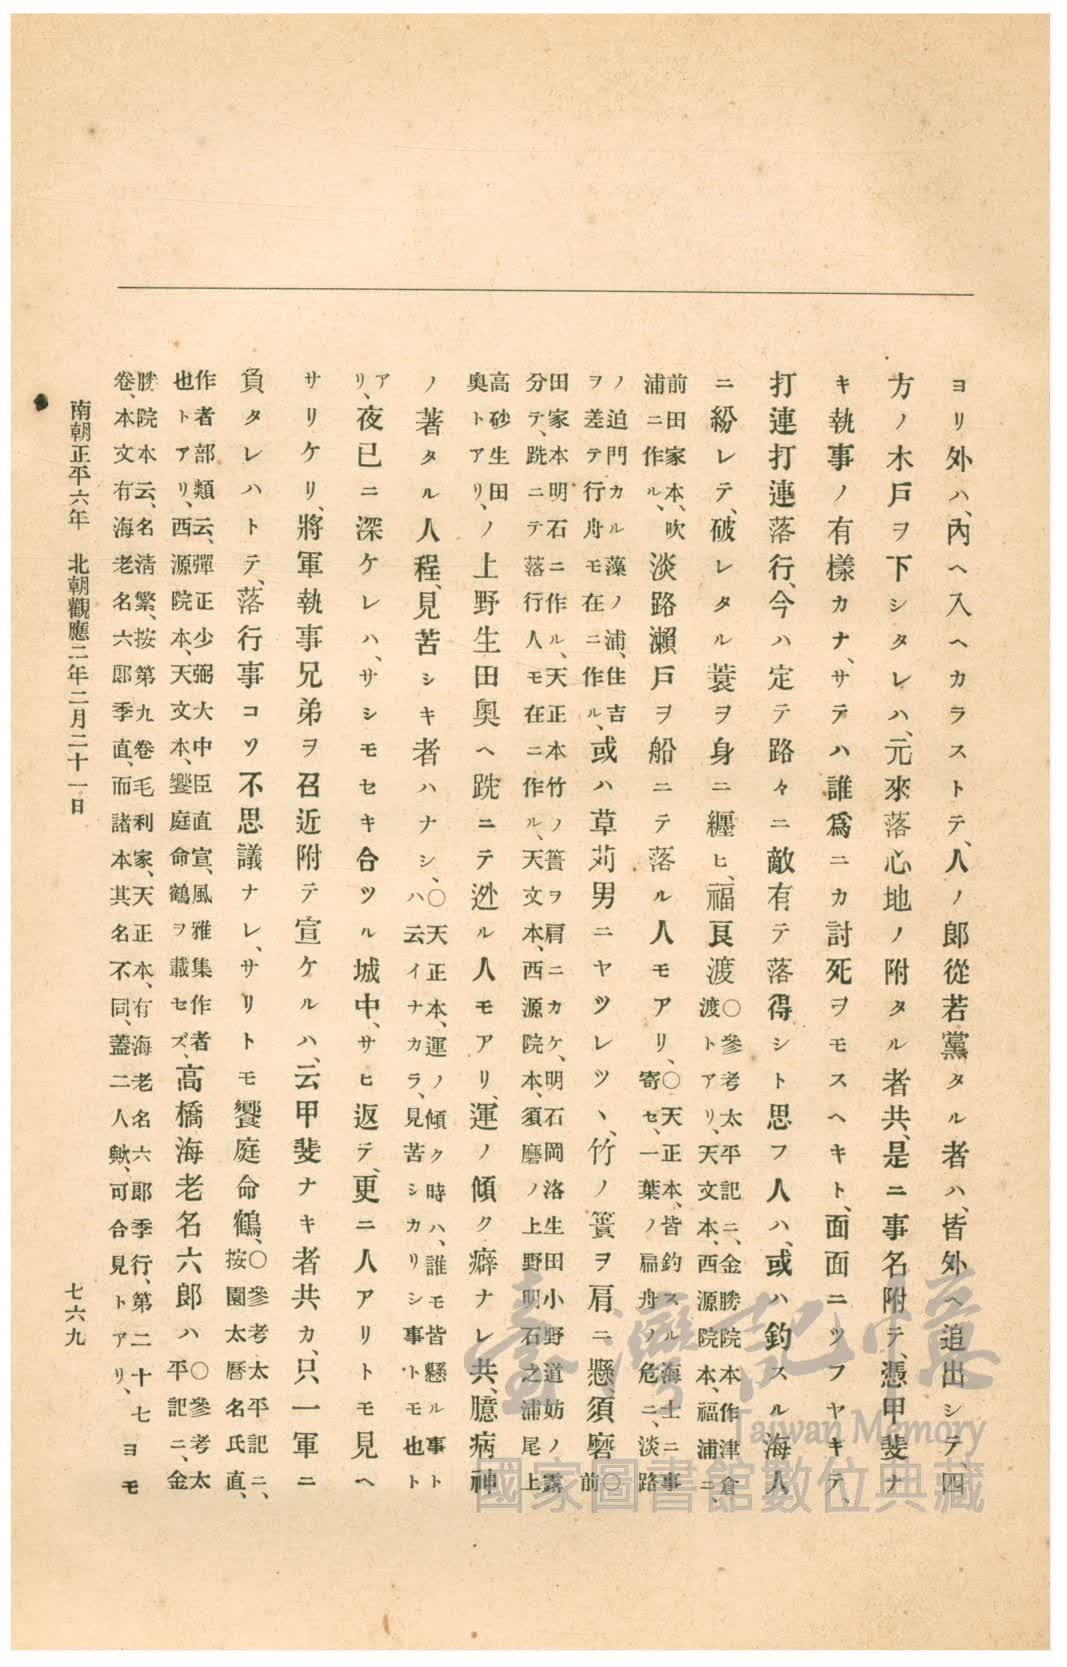 ヨリ外ハ、內ヘ入ヘカラストテ、人ノ郎從若黨タル者ハ、皆外ヘ追出シテ、四
方ノ木戶ヲ下シタレハ、元來落心地ノ附タル者共、是ニ事名附テ、憑甲斐ナ
キ執事ノ有樣カナ、サテハ誰爲ニカ討死ヲモスヘキト、面面ニツフヤキテ、
打連打連落行、今ハ定テ路々ニ敵有テ落得シト思フ人ハ、或ハ釣スル海人
ニ紛レテ、破レタル蓑ヲ身ニ纒ヒ、福良渡
〇參考太平記ニ、金勝院本作津倉
渡トアリ、天文本、西源院本、福浦ニ、
前田家本、吹
浦ニ作ル、
淡路瀨戶ヲ船ニテ落ル人モアリ、
〇天正本、皆釣スル海士ニ事
寄セ、一葉ノ扁舟ノ危ニ、淡路
ノ迫門カル藻ノ浦、住吉
ヲ差テ行舟モ在ニ作ル、
或ハ草苅男ニヤツレツヽ、竹ノ簣ヲ肩ニ懸須磨
〇
前
田家本明石ニ作ル、天正本竹ノ簀ヲ肩ニカケ、明石岡洛生田小野道妨ノ露
分テ、跣ニテ落行人モ在ニ作ル、天文本、西源院本、須磨ノ上野明石之浦尾上
高砂生田
奧トアリ、
ノ上野生田奧ヘ跣ニテ迯ル人モアリ、運ノ傾ク癖ナレ共、臆病神
ノ著タル人程、見苦シキ者ハナシ、
〇天正本、運ノ傾ク時ハ、誰モ皆懸ル事ト
ハ云イナカラ、見苦シカリシ事トモ也ト
ア
リ、
夜已ニ深ケレハ、サシモセキ合ツル城中、サヒ返テ、更ニ人アリトモ見ヘ
サリケリ、將軍執事兄弟ヲ召近附テ宣ケルハ、云甲斐ナキ者共カ、只一軍ニ
負タレハトテ、落行事コソ不思議ナレ、サリトモ饗庭命鶴、
〇參考太平記ニ、
按園太曆名氏直、
作者部類云、彈正少弼大中臣直宣、風雅集作者
也トアリ、西源院本、天文本、饗庭命鶴ヲ載セズ、
高橋海老名六郎ハ
〇參考太
平記ニ、金
勝院本云、名淸繁、按第九卷毛利家、天正本、有海老名六郎季行、第二十七
卷、本文有海老名六郎季直、而諸本其名不同、蓋二人歟、可合見トアリ、
ヨモ
南朝正平六年 北朝觀應二年二月二十一日
七六九
臺灣記憶
Taiwan Memory
國家圖書館數位典藏